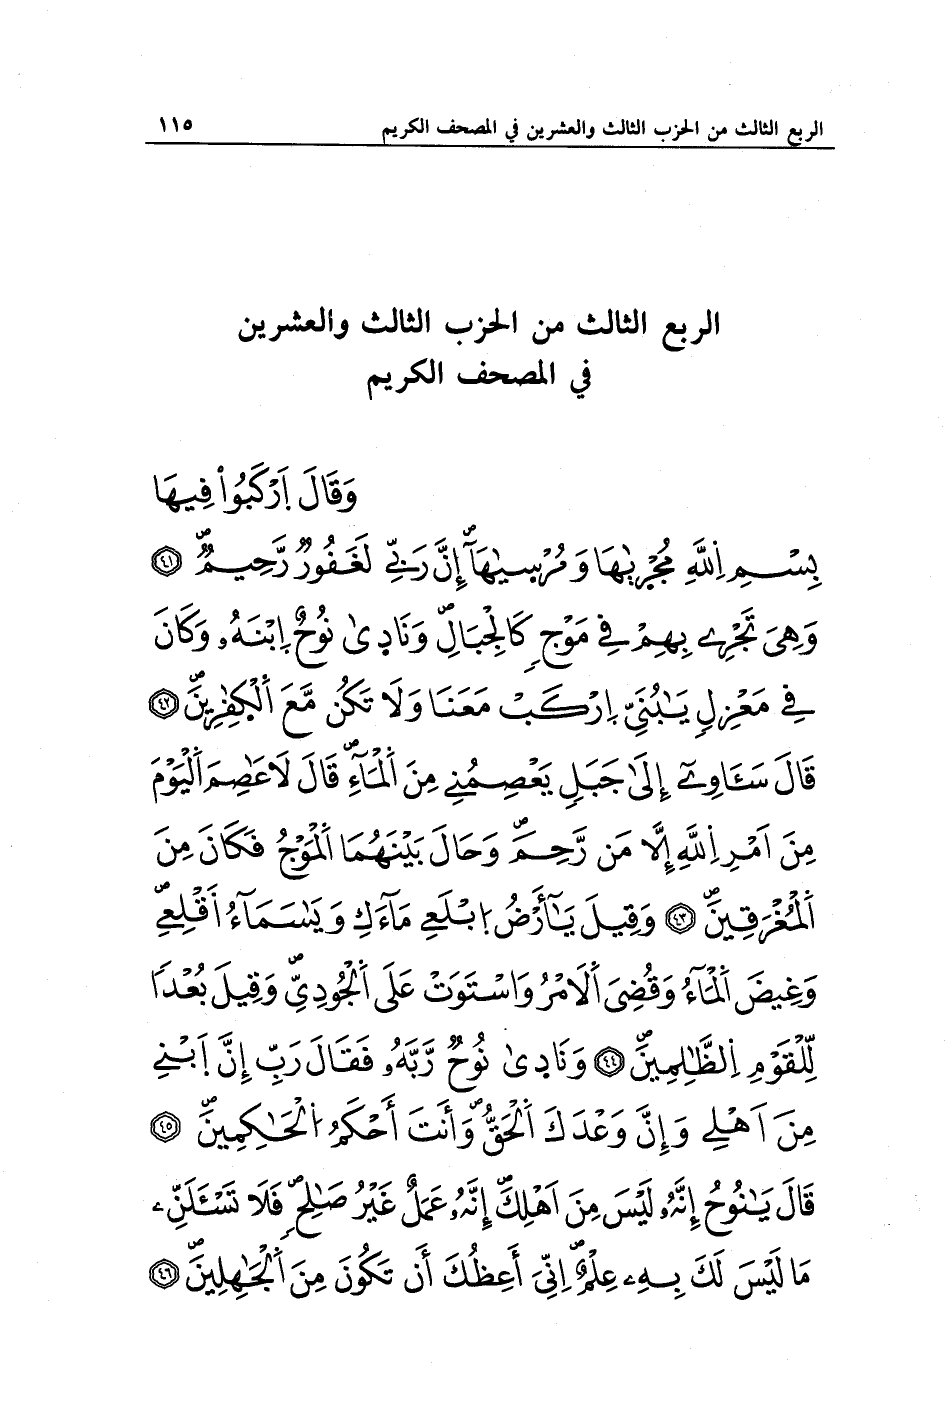 الربع الثالث من الحزب الثالث والعشرين في المصحف الكريم ١١٥
الربع الثالث من الحزب الثالث والعشرين
في المصحف الكريم
وَقَالَ اَرْكَبُواْ فِيهَا
بِسْمِ اِللَّهِ مُجْر۪ىٰهَا وَمُرْس۪ىٰهَآ إِنَّ رَبِّي لَغَفُورٌ رَّحِيمٌ ٤١
وَهِيَ تَجْرِے بِهِمْ فِے مَوْجٖ كَالْجِبَالِ وَنَاد۪ىٰ نُوحٌ اِبْنَهُۥ وَكَانَ
فِے مَعْزِلٖ يَٰبُنَيِّ اِرْكَبْ مَعَنَا وَلَا تَكُن مَّعَ اَلْكٰفِرِينَ ٤٢
قَالَ سَـَٔاوِےٓ إِلَىٰ جَبَلٖ يَعْصِمُنِے مِنَ اَلْمَآءِ قَالَ لَا عَاصِمَ اَلْيَوْمَ
مِنَ اَمْرِ اِللَّهِ إِلَّا مَن رَّحِمَ وَحَالَ بَيْنَهُمَا اَلْمَوْجُ فَكَانَ مِنَ
اَلْمُغْرَقِينَ ٤٣ وَقِيلَ يَٰٓأَرْضُ اُ۪بْلَعِے مَآءَكِ وَيَٰسَمَآءُ اَقْلِعِے
وَغِيضَ اَلْمَآءُ وَقُضِيَ اَلَامْرُ وَاسْتَوَتْ عَلَى اَلْجُودِيِّ وَقِيلَ بُعْدًا
لِّلْقَوْمِ اِلظَّٰلِمِينَ ٤٤ وَنَاد۪ىٰ نُوحٌ رَّبَّهُۥ فَقَالَ رَبِّ إِنَّ اَبْنِے
مِنَ اَهْلِے وَإِنَّ وَعْدَكَ اَلْحَقُّ وَأَنتَ أَحْكَمُ اُلْحَٰكِمِينَ ٤٥
قَالَ يَٰنُوحُ إِنَّهُۥ لَيْسَ مِنَ اَهْلِكَ إِنَّهُۥ عَمَلٌ غَيْرُ صَٰلِحٖ فَلَا تَسْـَٔلَنِّۦ
مَا لَيْسَ لَكَ بِهِۦ عِلْمٌ اِنِّيَ أَعِظُكَ أَن تَكُونَ مِنَ اَلْجَٰهِلِينَ ٤٦